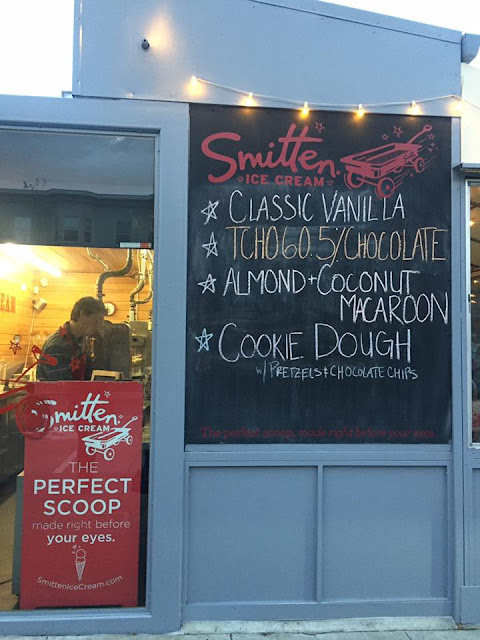 Smitten
ICE CREAM
CLASSIC VANILLA
TCHO 60.5% CHOCOLATE
ALMOND + COCONUT
MACAROON
COOKIE DOUGH
W/ PRETZELS & CHOCOLATE CHIPS
The perfect scoop, made right before your eyes.
Smitten
ICE CREAM
THE
PERFECT
SCOOP
made right before
your eyes.
SmittenIceCream.com